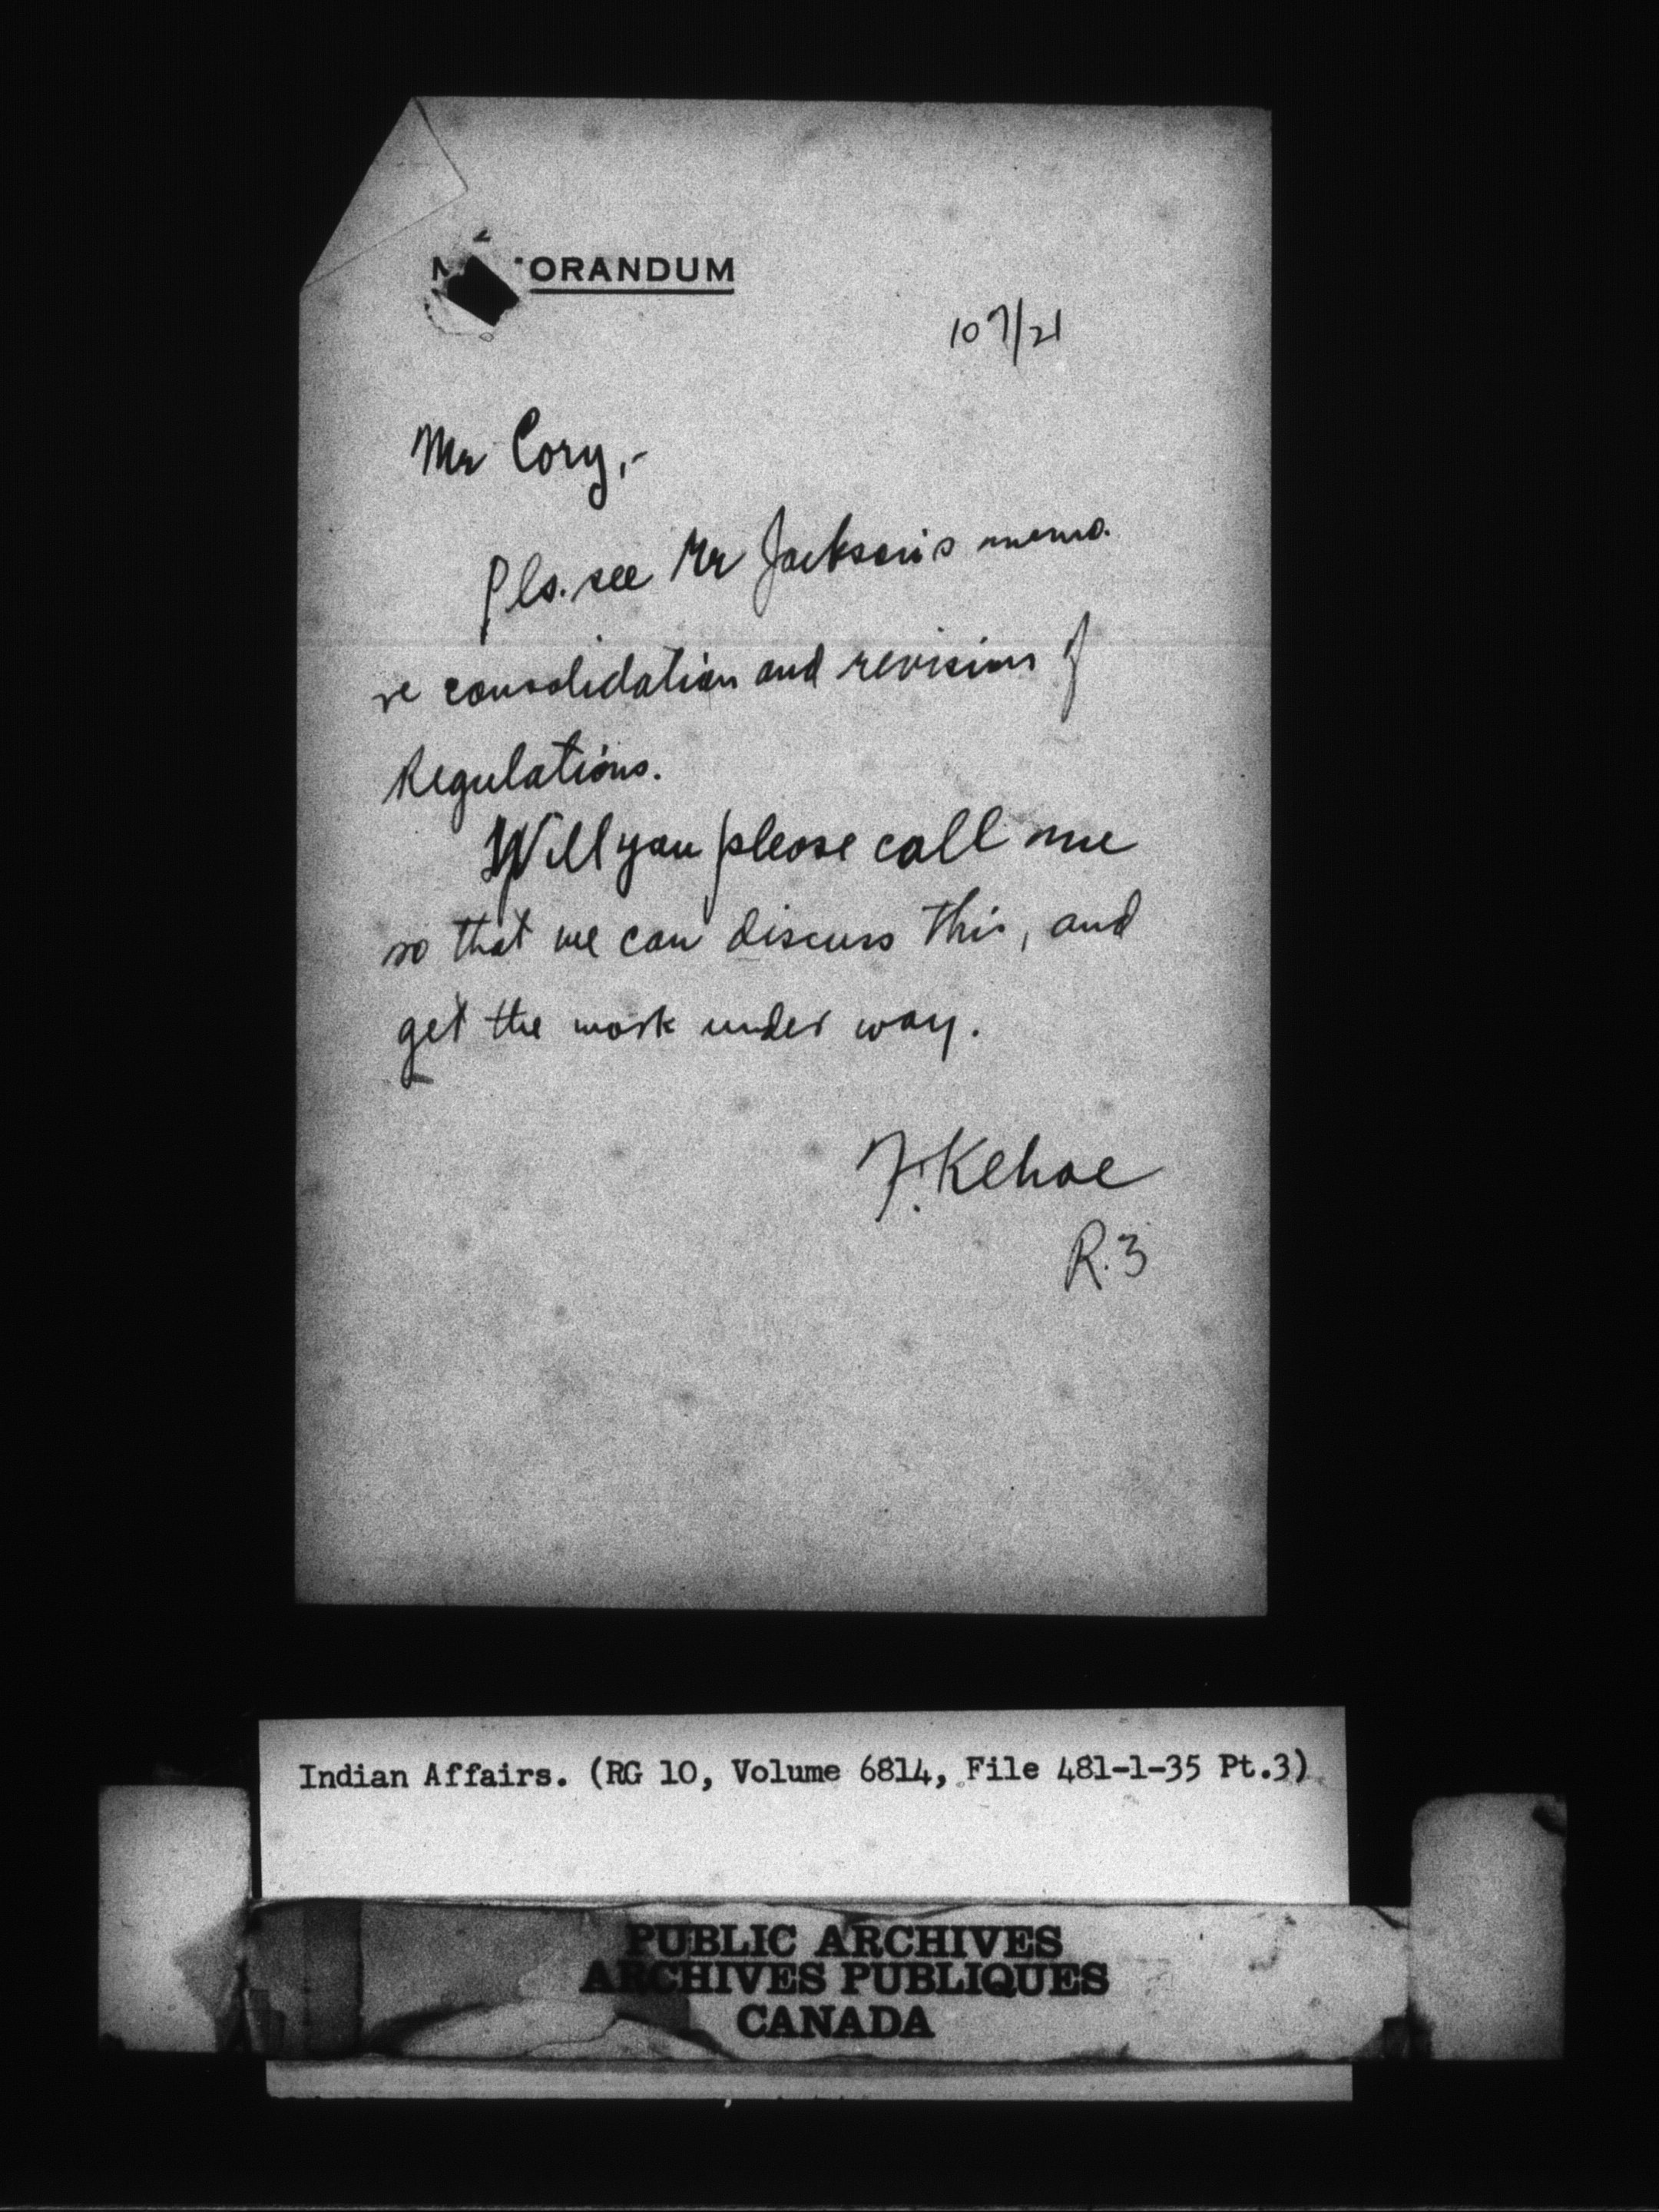 MEMORANDUM
10 7/21
Mr Cory,-
Pls. see Mr Jackson's memo.
re consolidation and revision of
Regulations.
Will you please call me
so that we can discuss this, and
get the work under way.
F. Kehoe
R. 3
Indian Affairs. (RG 10, Volume 6814, File 481-1-35 Pt.3)
PUBLIC ARCHIVES
ARCHIVES PUBLIQUES
CANADA